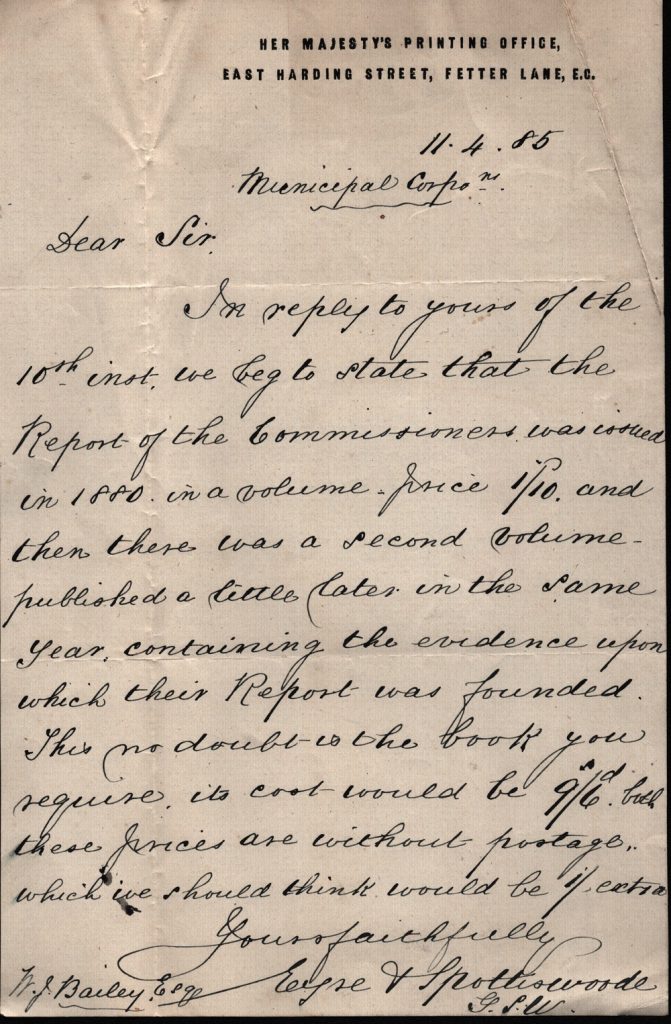 HER MAJESTY'S PRINTING OFFICE,
EAST HARDING STREET, FETTER LANE, E.C.
11.4.85
Municipal Corpons.
Dear Sir,
In reply to yours of the
10th inst. we beg to state that the
Report of the Commissioners was issued
in 1880. in a volume. price 1/10. and
then there was a second volume -
published a little later in the same
year, containing the evidence upon
which their Report was founded.
This no doubt is the book you
require, its cost would be 9s/6d. both
these prices are without postage,
which we should think would be 1/- extra
Yours faithfully
Eyre & Spottiswoode
W. J. Bailey, Esqe
G.S.W.